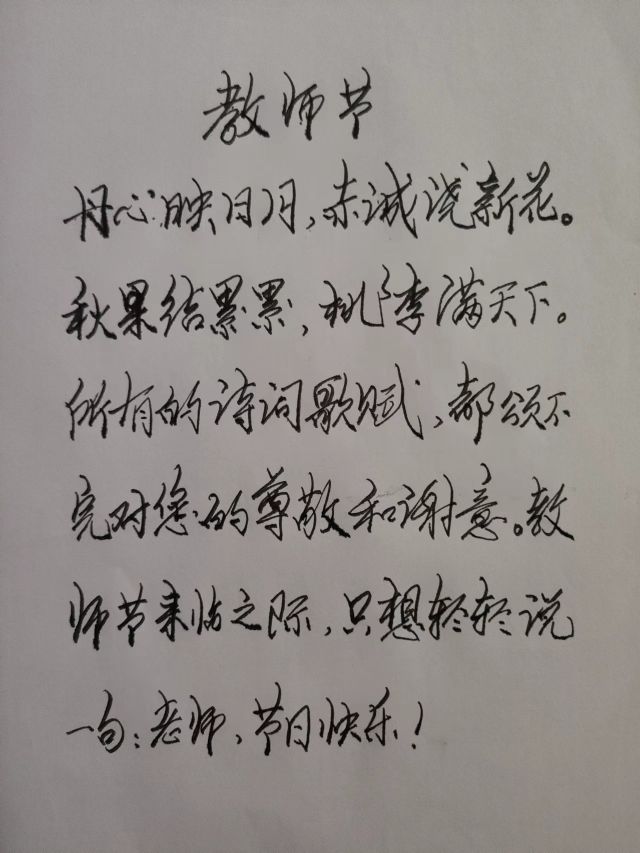 教师节
丹心映日月,赤诚浇新花。
秋果结累累,桃李满天下。
所有的诗词歌赋,都颂不
完对您的尊敬和谢意。教
师节来临之际,只想轻轻说
一句:老师、节日快乐!